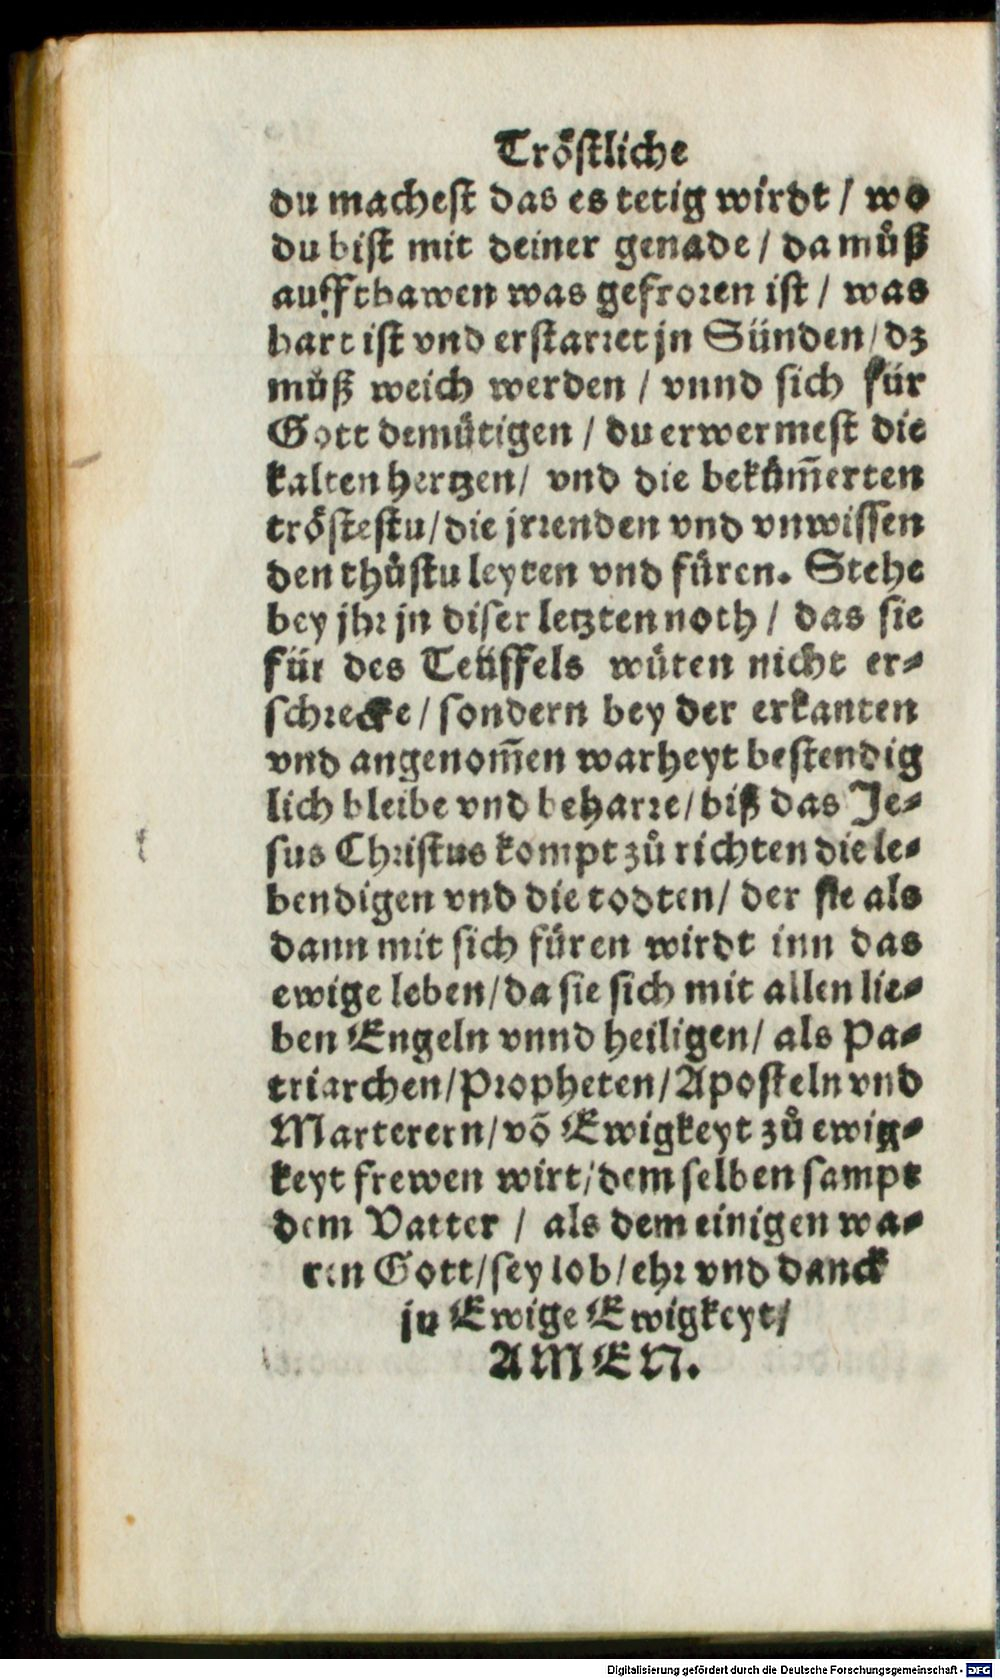 Tröstliche
du machest das es tetig wirdt / wo
du bist mit deiner genade / da můß
auffthawen was gefroren ist / was
hart ist vnd erstarret jn Sünden / dz
můß weich werden / vnnd sich für
Gott demütigen / du erwermest die
kalten hertzen / vnd die bekům̃erten
tröstestu / die jrrenden vnd vnwissen
den thůstu leyten vnd füren. Stehe
bey jhr jn diser letzten noth / das sie
für des Teüffels wüten nicht er-
schrecke / sondern bey der erkanten
vnd angenom̃en warheyt bestendig
lich bleibe vnd beharre / biß das Je-
sus Christus kompt zů richten die le-
bendigen vnd die todten / der sie als
dann mit sich füren wirdt inn das
ewige leben / da sie sich mit allen lie-
ben Engeln vnnd heiligen / als Pa-
triarchen / Propheten / Aposteln vnd
Marterern / võ Ewigkeyt zů ewig-
keyt frewen wirt / dem selben sampt
dem Vatter / als dem einigen wa-
ren Gott / sey lob / ehr vnd danck
jn Ewige Ewigkeyt /
AMEN.
Digitalisierung gefördert durch die Deutsche Forschungsgemeinschaft - DFG